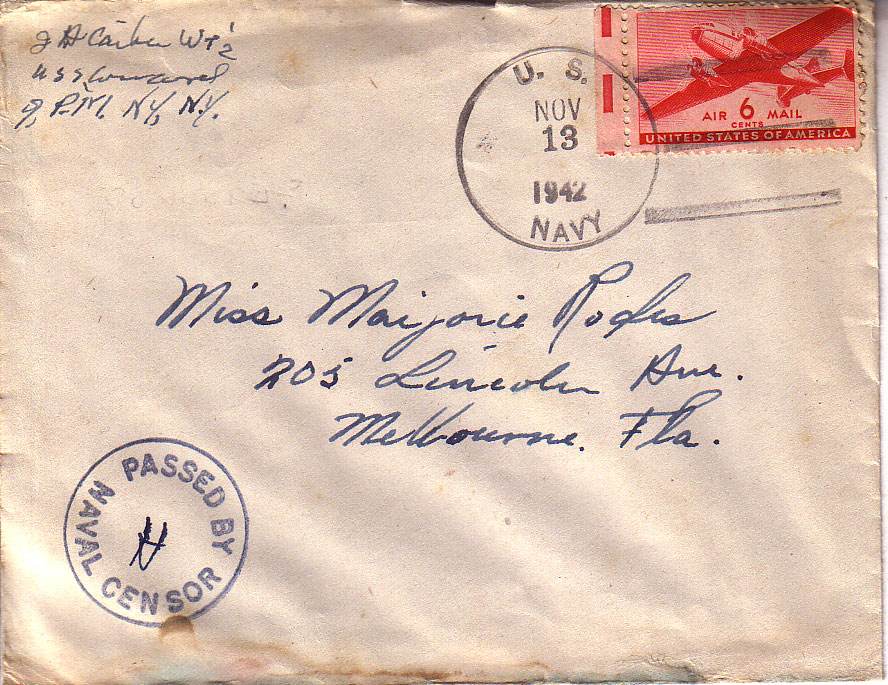 J H Carber WT2
USS
% P.M. N.Y., N.Y.
U. S.
NOV
13
1942
NAVY
AIR 6 MAIL
CENTS
UNITED STATES OF AMERICA
Miss Marjorie
205 Lincoln Ave.
Melbourne, Fla.
PASSED BY
NAVAL CENSOR